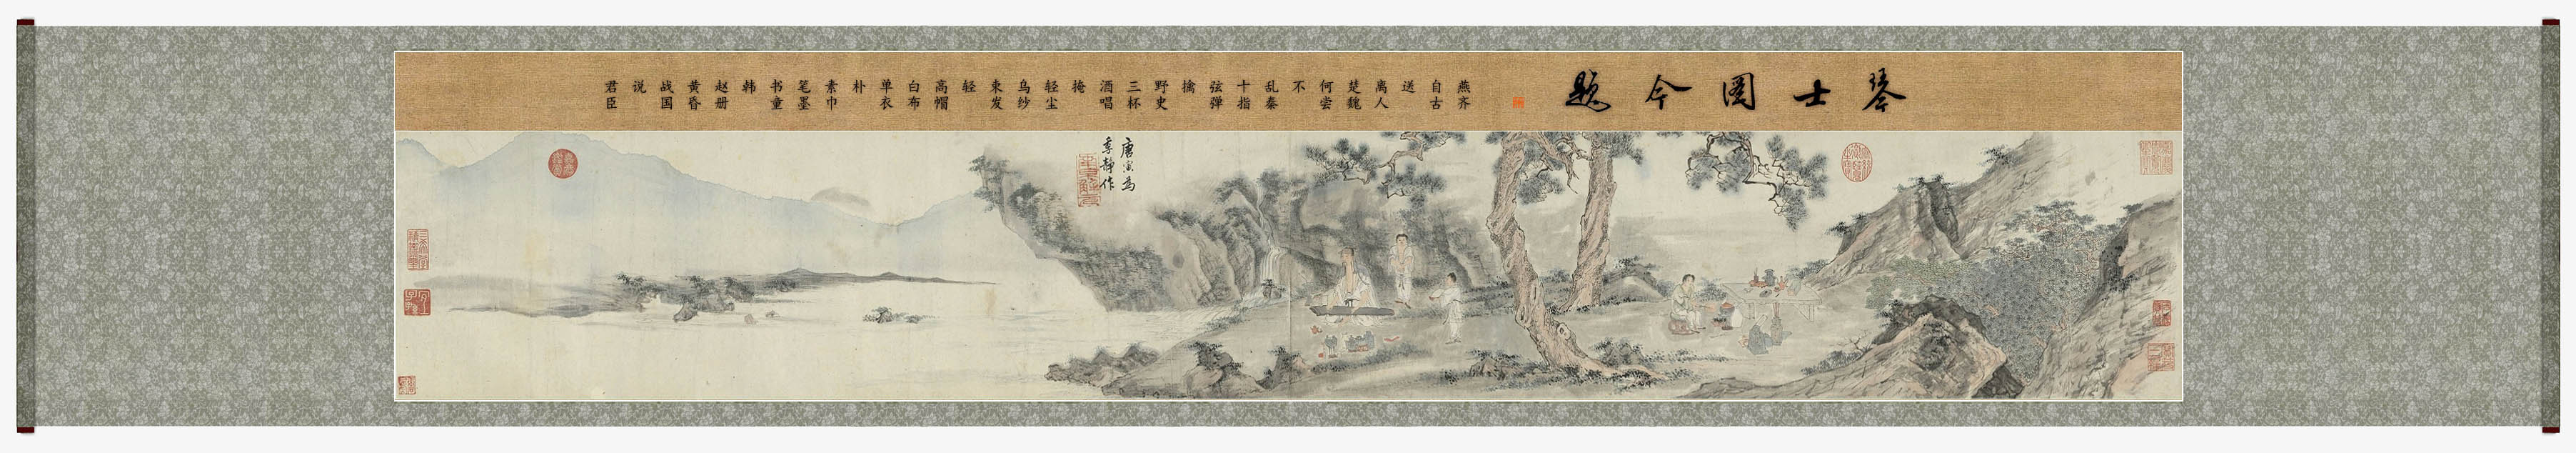 琴士圖今题
燕齐
自古
送
离人
楚魏
何尝
不
乱秦
十指
弦弹
擒
野史
三杯
酒唱
掩
轻尘
乌纱
束发
轻
高帽
白布
单衣
朴
素巾
笔墨
书童
韩
赵册
黄昏
战国
说
君臣
唐寅为
季静作
三希堂
精鉴玺
宜子孙